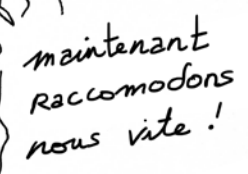 maintenant
Raccomodons
nous vite !